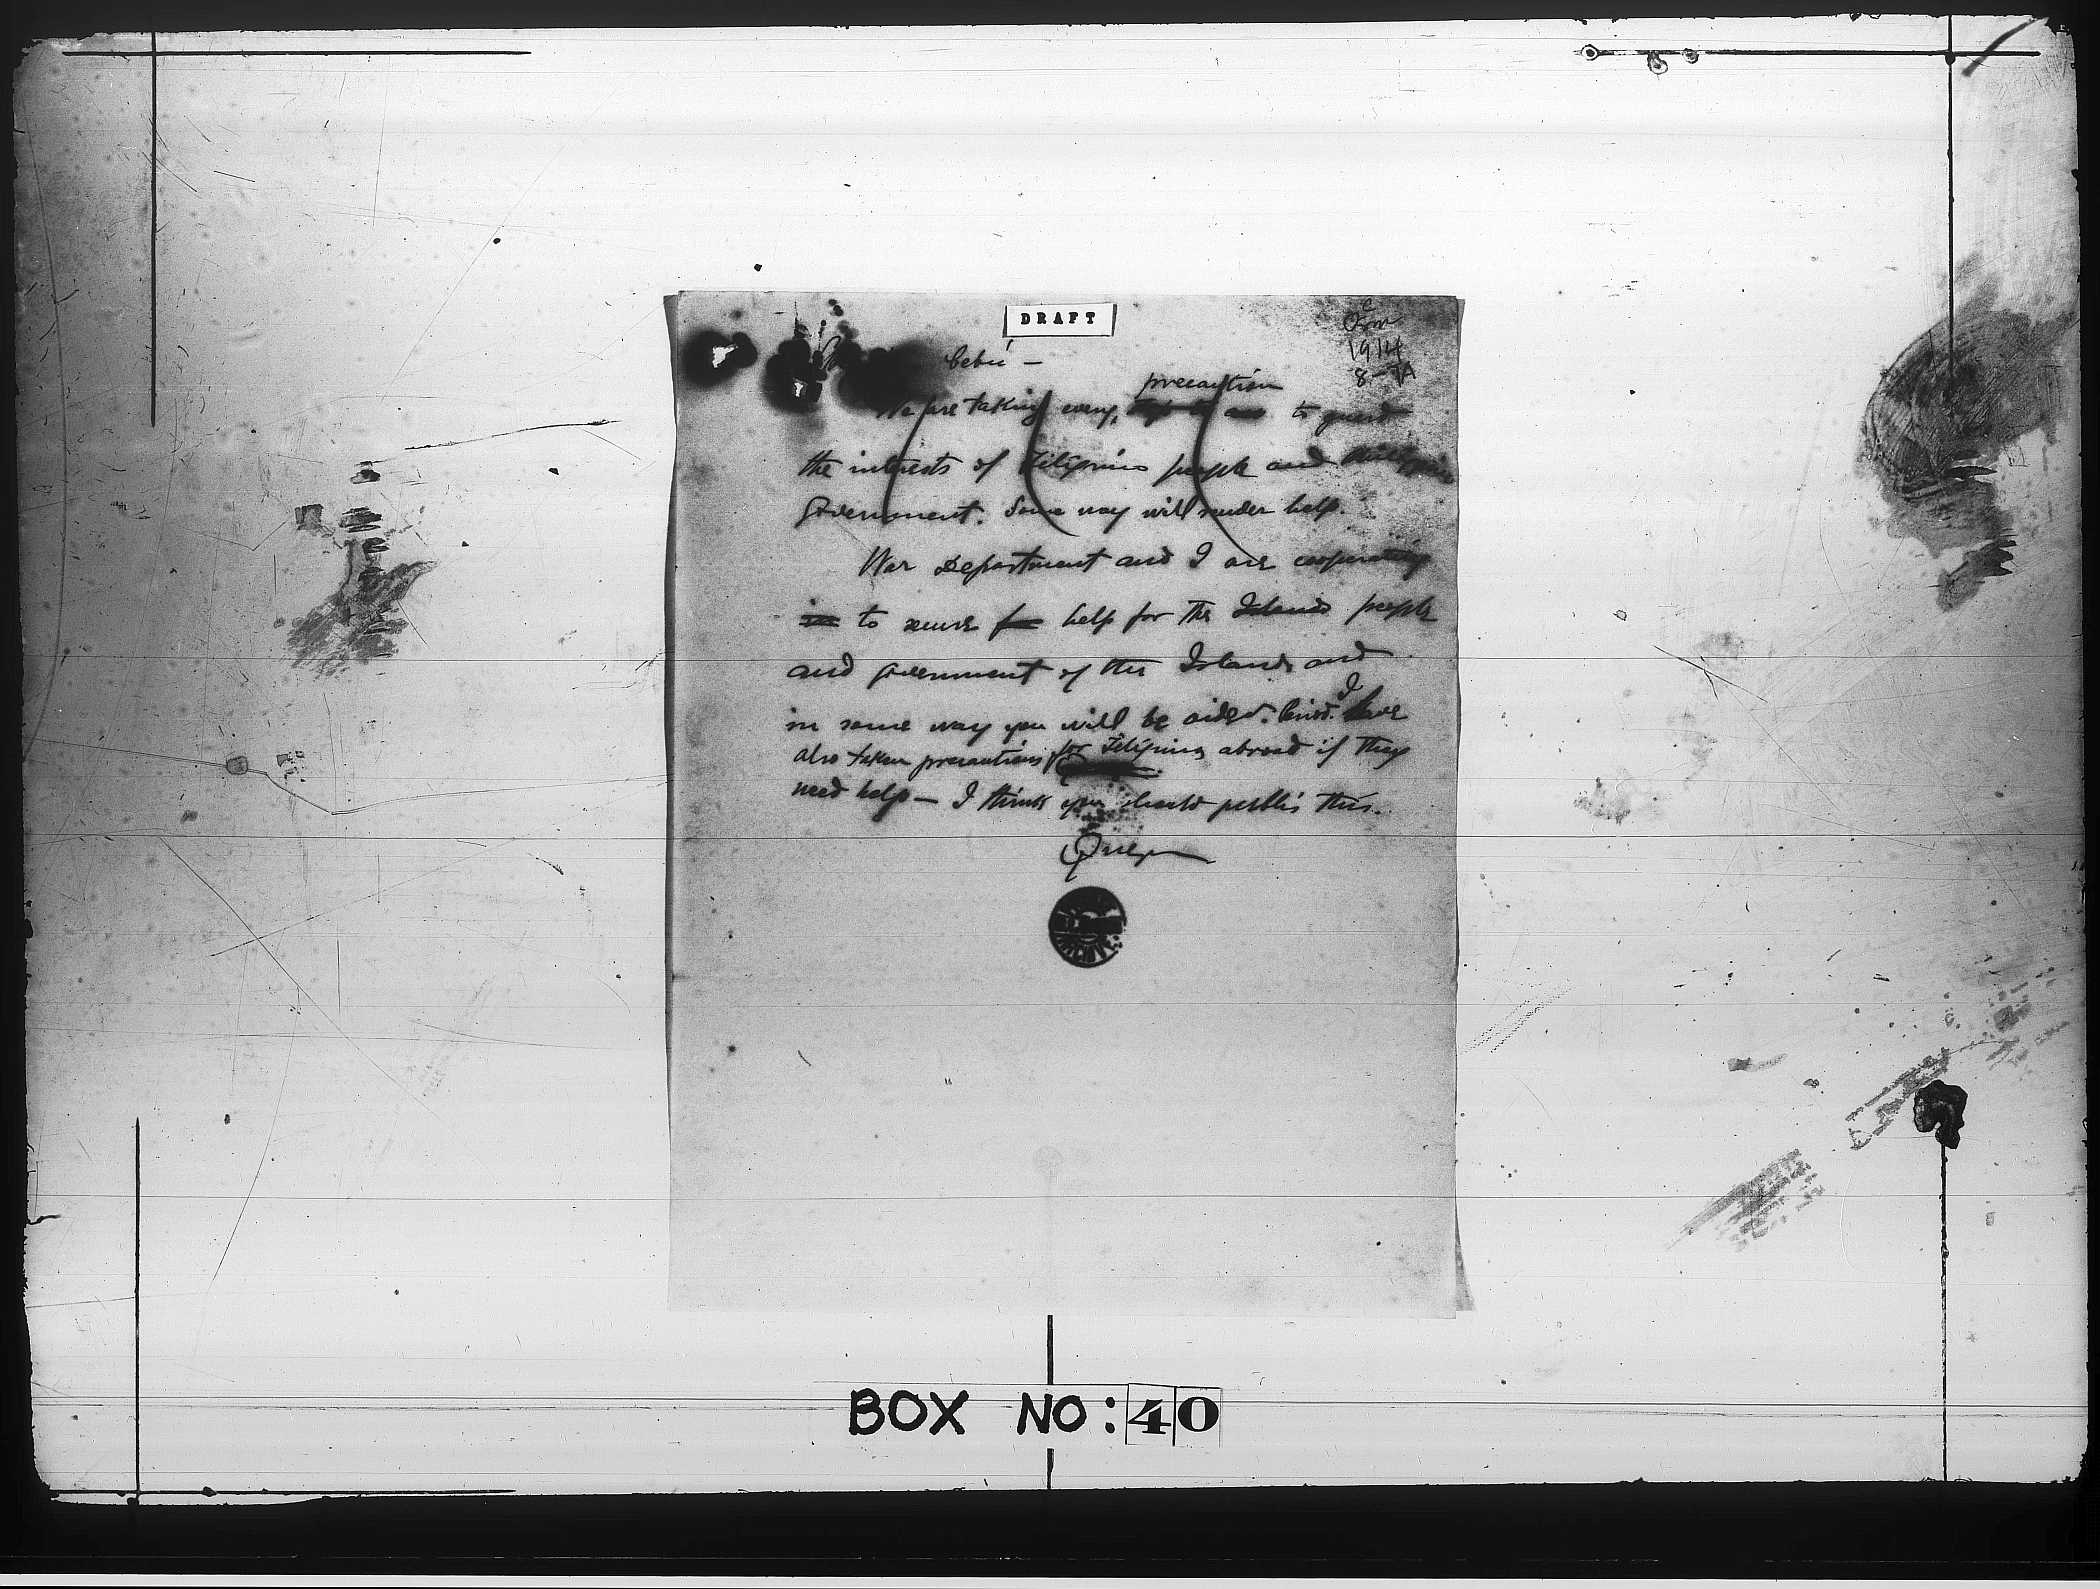 DRAFT
1914
8-7A
Cebú —
precaution
We are taking every, to guard
the interests of Filipino people and Philippine
Government. Some way will render help.
War Department and I are cooperating
in to secure for help for the Islands people
and government of the Islands and
in some way you will be aided. Period. I have
also taken precautions for Filipinos abroad if they
need help — I think you should publis this.
Quezon
BOX NO: 40